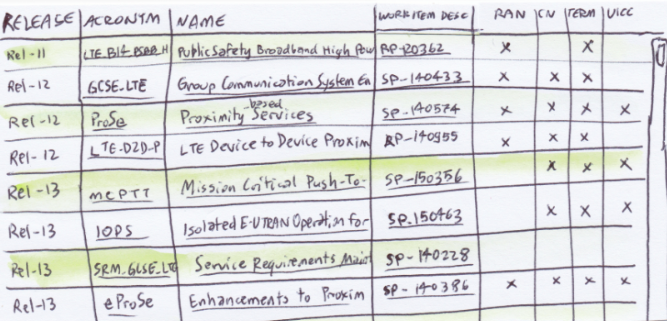 RELEASE ACRONYM NAME WORK ITEM DESC RAN CN TERM UICC
Rel-11 Public Safety Broadband High Pow RP-120362 x x
Rel-12 GCSE_LTE Group Communication System En SP-140433 x x x
Rel-12 ProSe Proximity-based Services SP-140574 x x x x
Rel-12 LTE-D2D-P LTE Device to Device Proxim RP-140955 x x x
Rel-13 MCPTT Mission Critical Push-To- SP-150356 x x x
Rel-13 IOPS Isolated E-UTRAN Operation for SP-150463 x x x
Rel-13 SRM_GCSE_LTE Service Requirements Maint SP-140228
Rel-13 eProSe Enhancements to Proxim SP-140386 x x x x